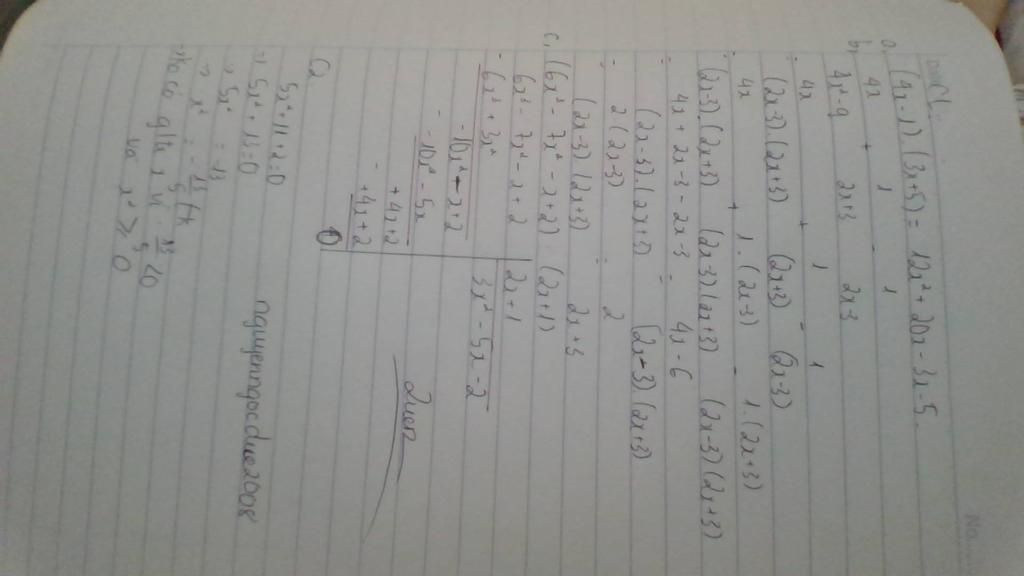 a, (4x-1).(3x+5) = 12x² + 20x - 3x - 5
b, 4x/(4x²-9) + 1/(2x+3) - 1/(2x-3)
= 4x/((2x-3).(2x+3)) + 1/(2x+3) - 1/(2x-3)
= 4x/((2x-3).(2x+3)) + 1.(2x-3)/((2x-3)(2x+3)) - 1.(2x+3)/((2x-3)(2x+3))
= (4x + 2x - 3 - 2x - 3)/((2x-3).(2x+3)) = (4x - 6)/((2x-3)(2x+3))
= 2(2x-3)/((2x-3)(2x+3)) = 2/(2x+3)
c, (6x³ - 7x² - x + 2) : (2x+1)
6x³ - 7x² - x + 2 | 2x+1
- 6x³ + 3x² | 3x² - 5x - 2
-10x² - x + 2
- -10x² - 5x
+4x+2
- +4x+2
0
5x² + 11 + 2 = 0
=> 5x² + 13 = 0
-> 5x² = -13
-> x² = -13/5
và x² ≥ 0
nguyenngocduc2008